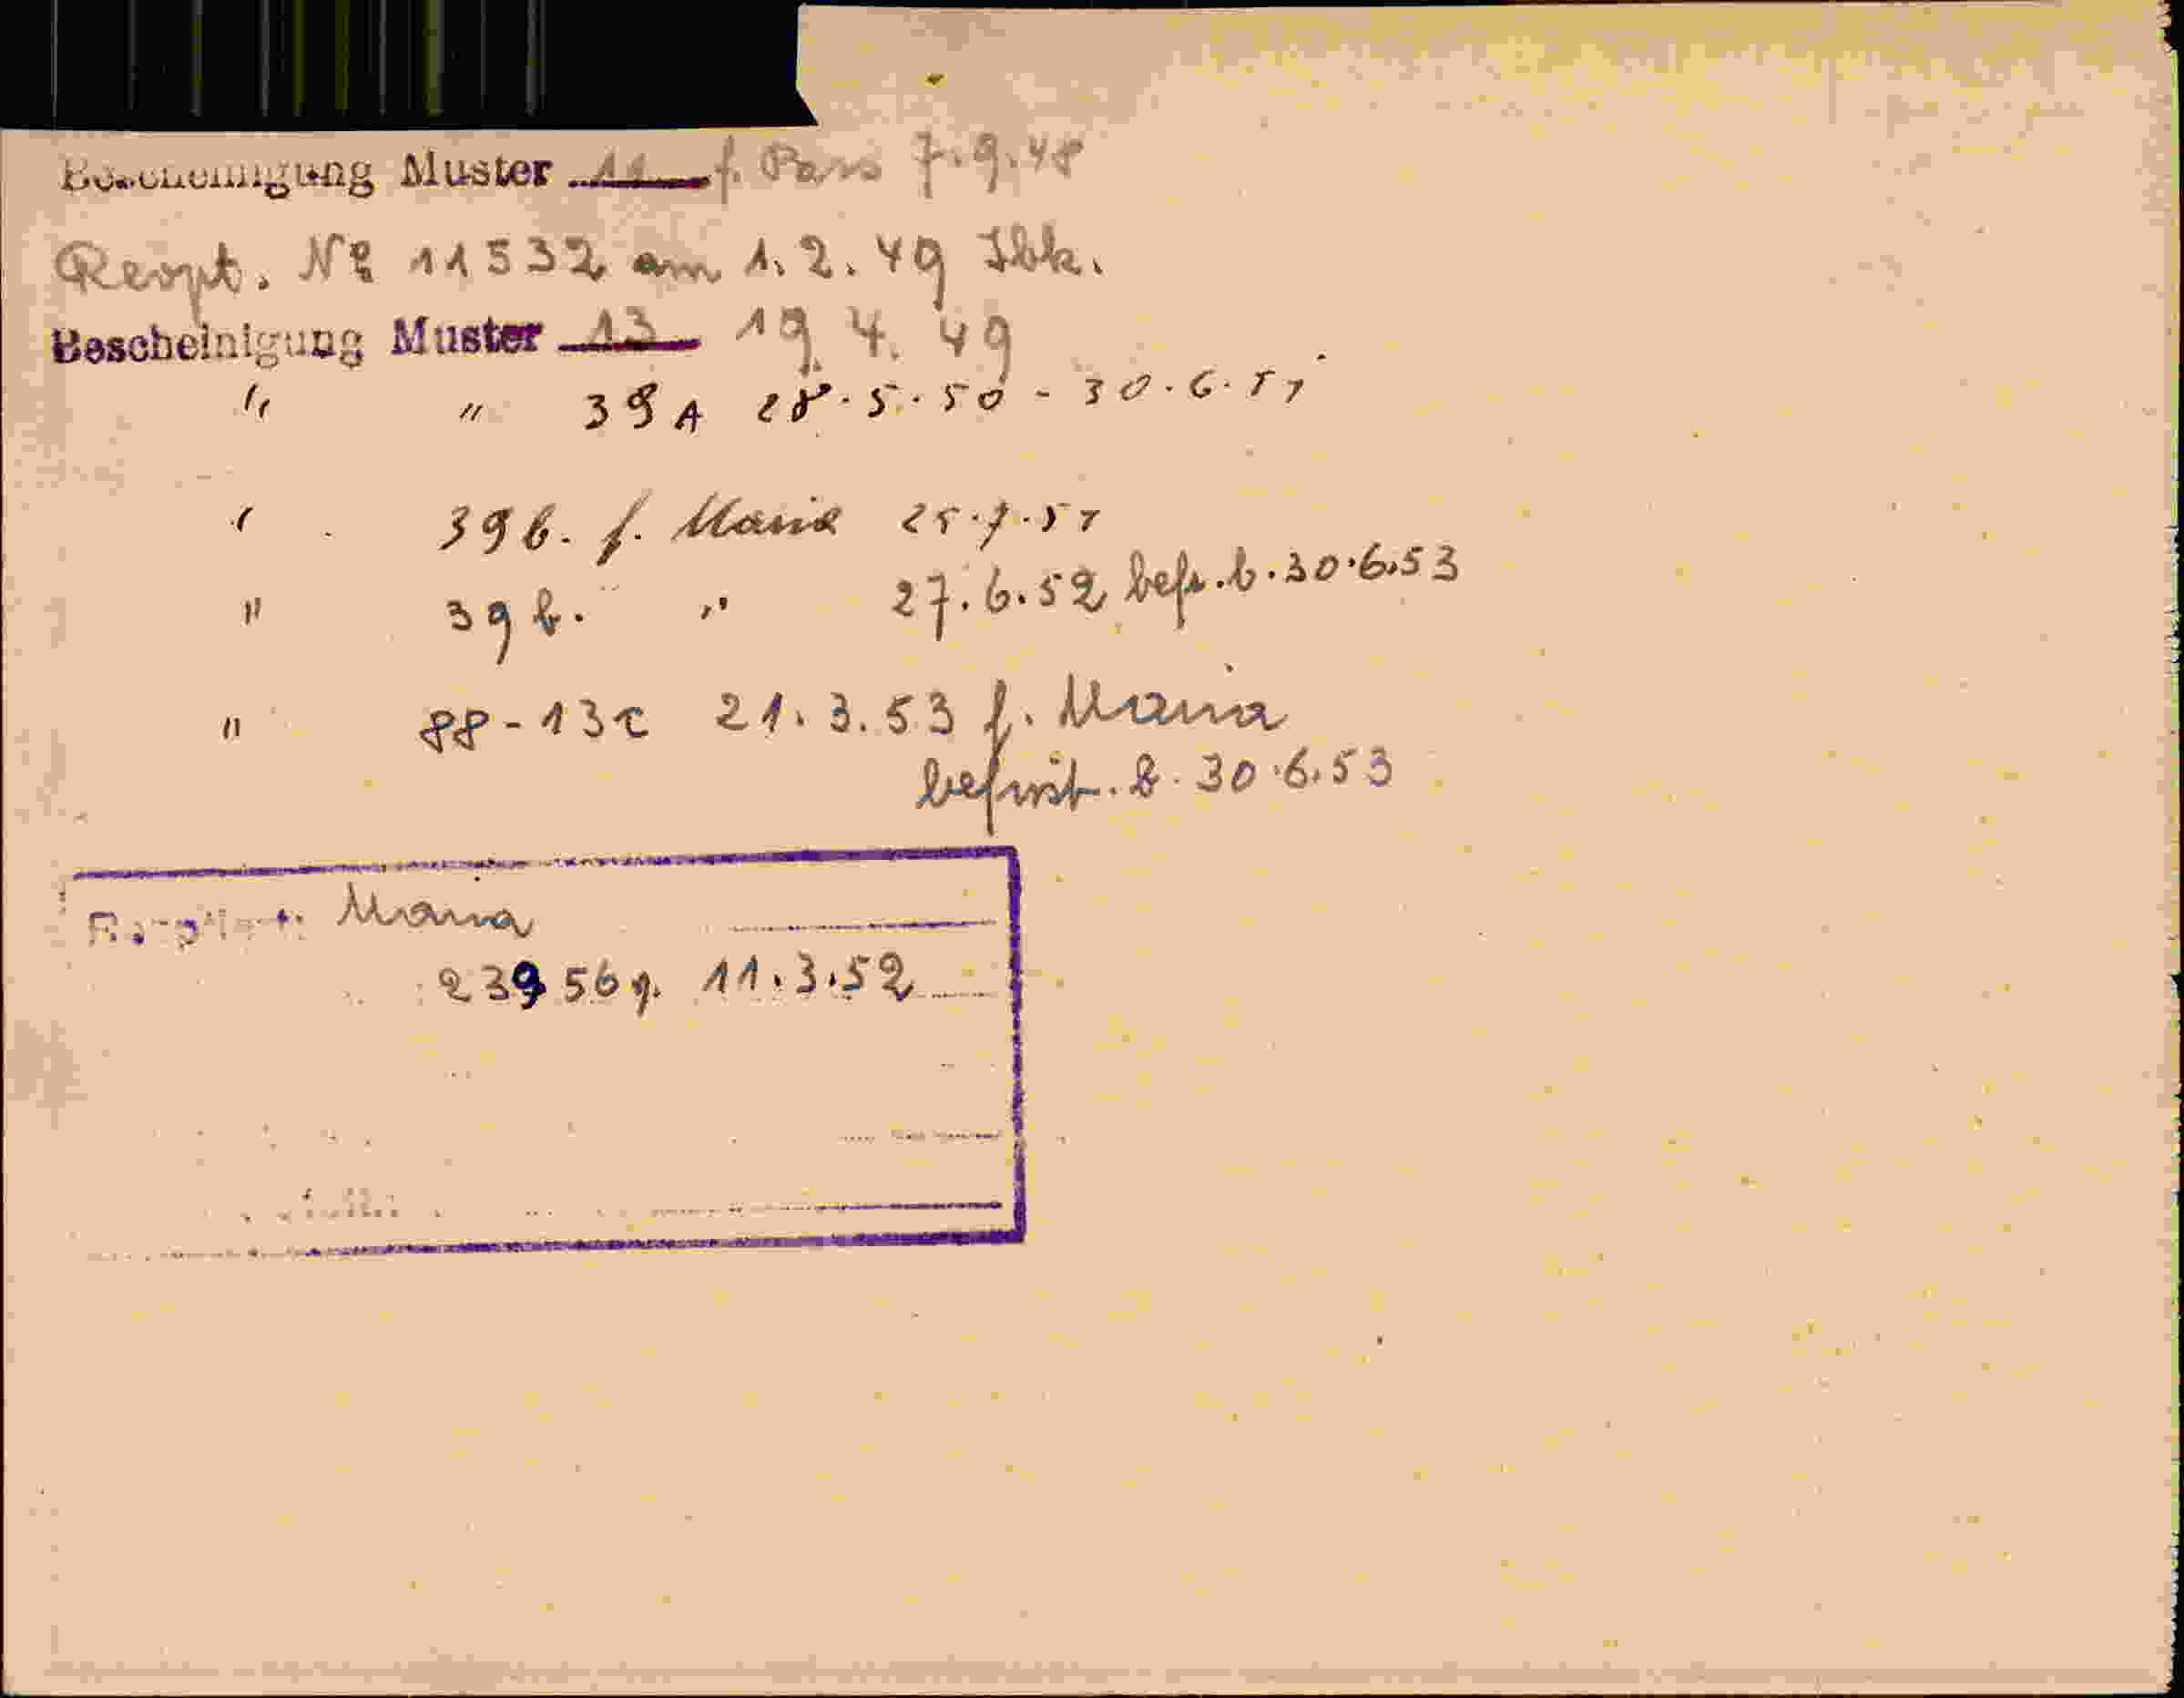 Bescheinigung Muster 11 f. Pass 7.9.48
Reopt. № 11532 am 1.2.49 Ibk.
Bescheinigung Muster 13 19.4.49
" " 39A 28.5.50 - 30.6.51
" 39b. f. Maria 25.7.51
" 39b. " 27.6.52 befr. b. 30.6.53
" 88-13c 21.3.53 f. Maria
befrist. b. 30.6.53
Maria
23956 11.3.52